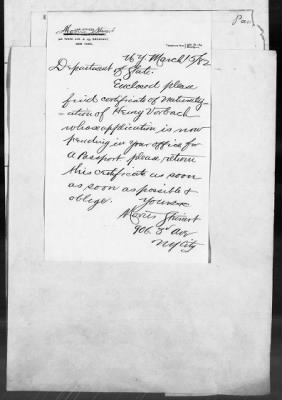 NEW YORK.
N.Y. March 15/82
Department of State.
Enclosed please
find certificate of Naturaliz
-ation of Henry Vorbach
whose application is now
pending in your office for
a Passport please return
this certificate as soon
as soon as posible &
oblige.
Yours &
906. 3rd Av
NY City